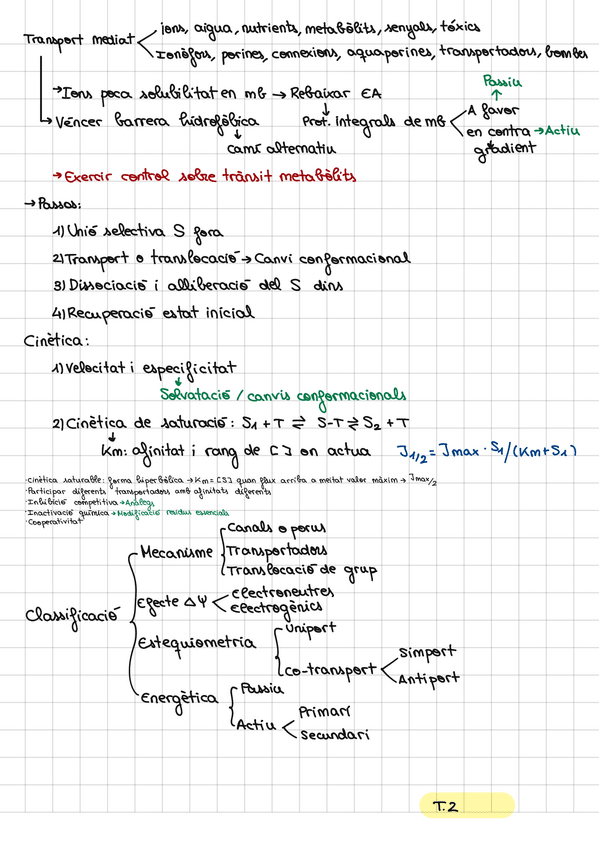 ions, aigua, nutrients, metabòlits, senyals, tòxics
Transport mediat
Ionòfors, porines, connexions, aquaporines, transportadors, bombes
→Ions poca solubilitat en mb → Rebaixar EA
Passiu
↑
↳ Véncer barrera hidrofòbica
Prot. integrals de mb
A favor
en contra → Actiu
gradient
camí alternatiu
→Exercir control sobre trànsit metabòlits
→Passos:
1) Unió selectiva S fora
2) Transport o translocació → Canvi conformacional
3) Dissociació i alliberació del S dins
4) Recuperació estat inicial
Cinètica:
1) Velocitat i especificitat
Solvatació / canvis conformacionals
2) Cinètica de saturació: S1 + T ⇄ S-T ⇄ S2 + T
Km: afinitat i rang de [] on actua
J1/2 = Jmax · S1/(Km+S1)
·Cinètica saturable: forma hiperbòlica → Km = [S] quan flux arriba a meitat valor màxim → Jmax/2
·Participar diferents transportadors amb afinitats diferents
·Inhibició competitiva → Anàlegs
·Inactivació química → Modificació residus essencials
·Cooperativitat
Classificació
Mecanisme
Canals o porus
Transportadors
Translocació de grup
Efecte ΔΨ
electroneutres
electrogènics
Estequiometria
Uniport
Co-transport
Simport
Antiport
Energètica
Passiu
Actiu
Primari
Secundari
T.2